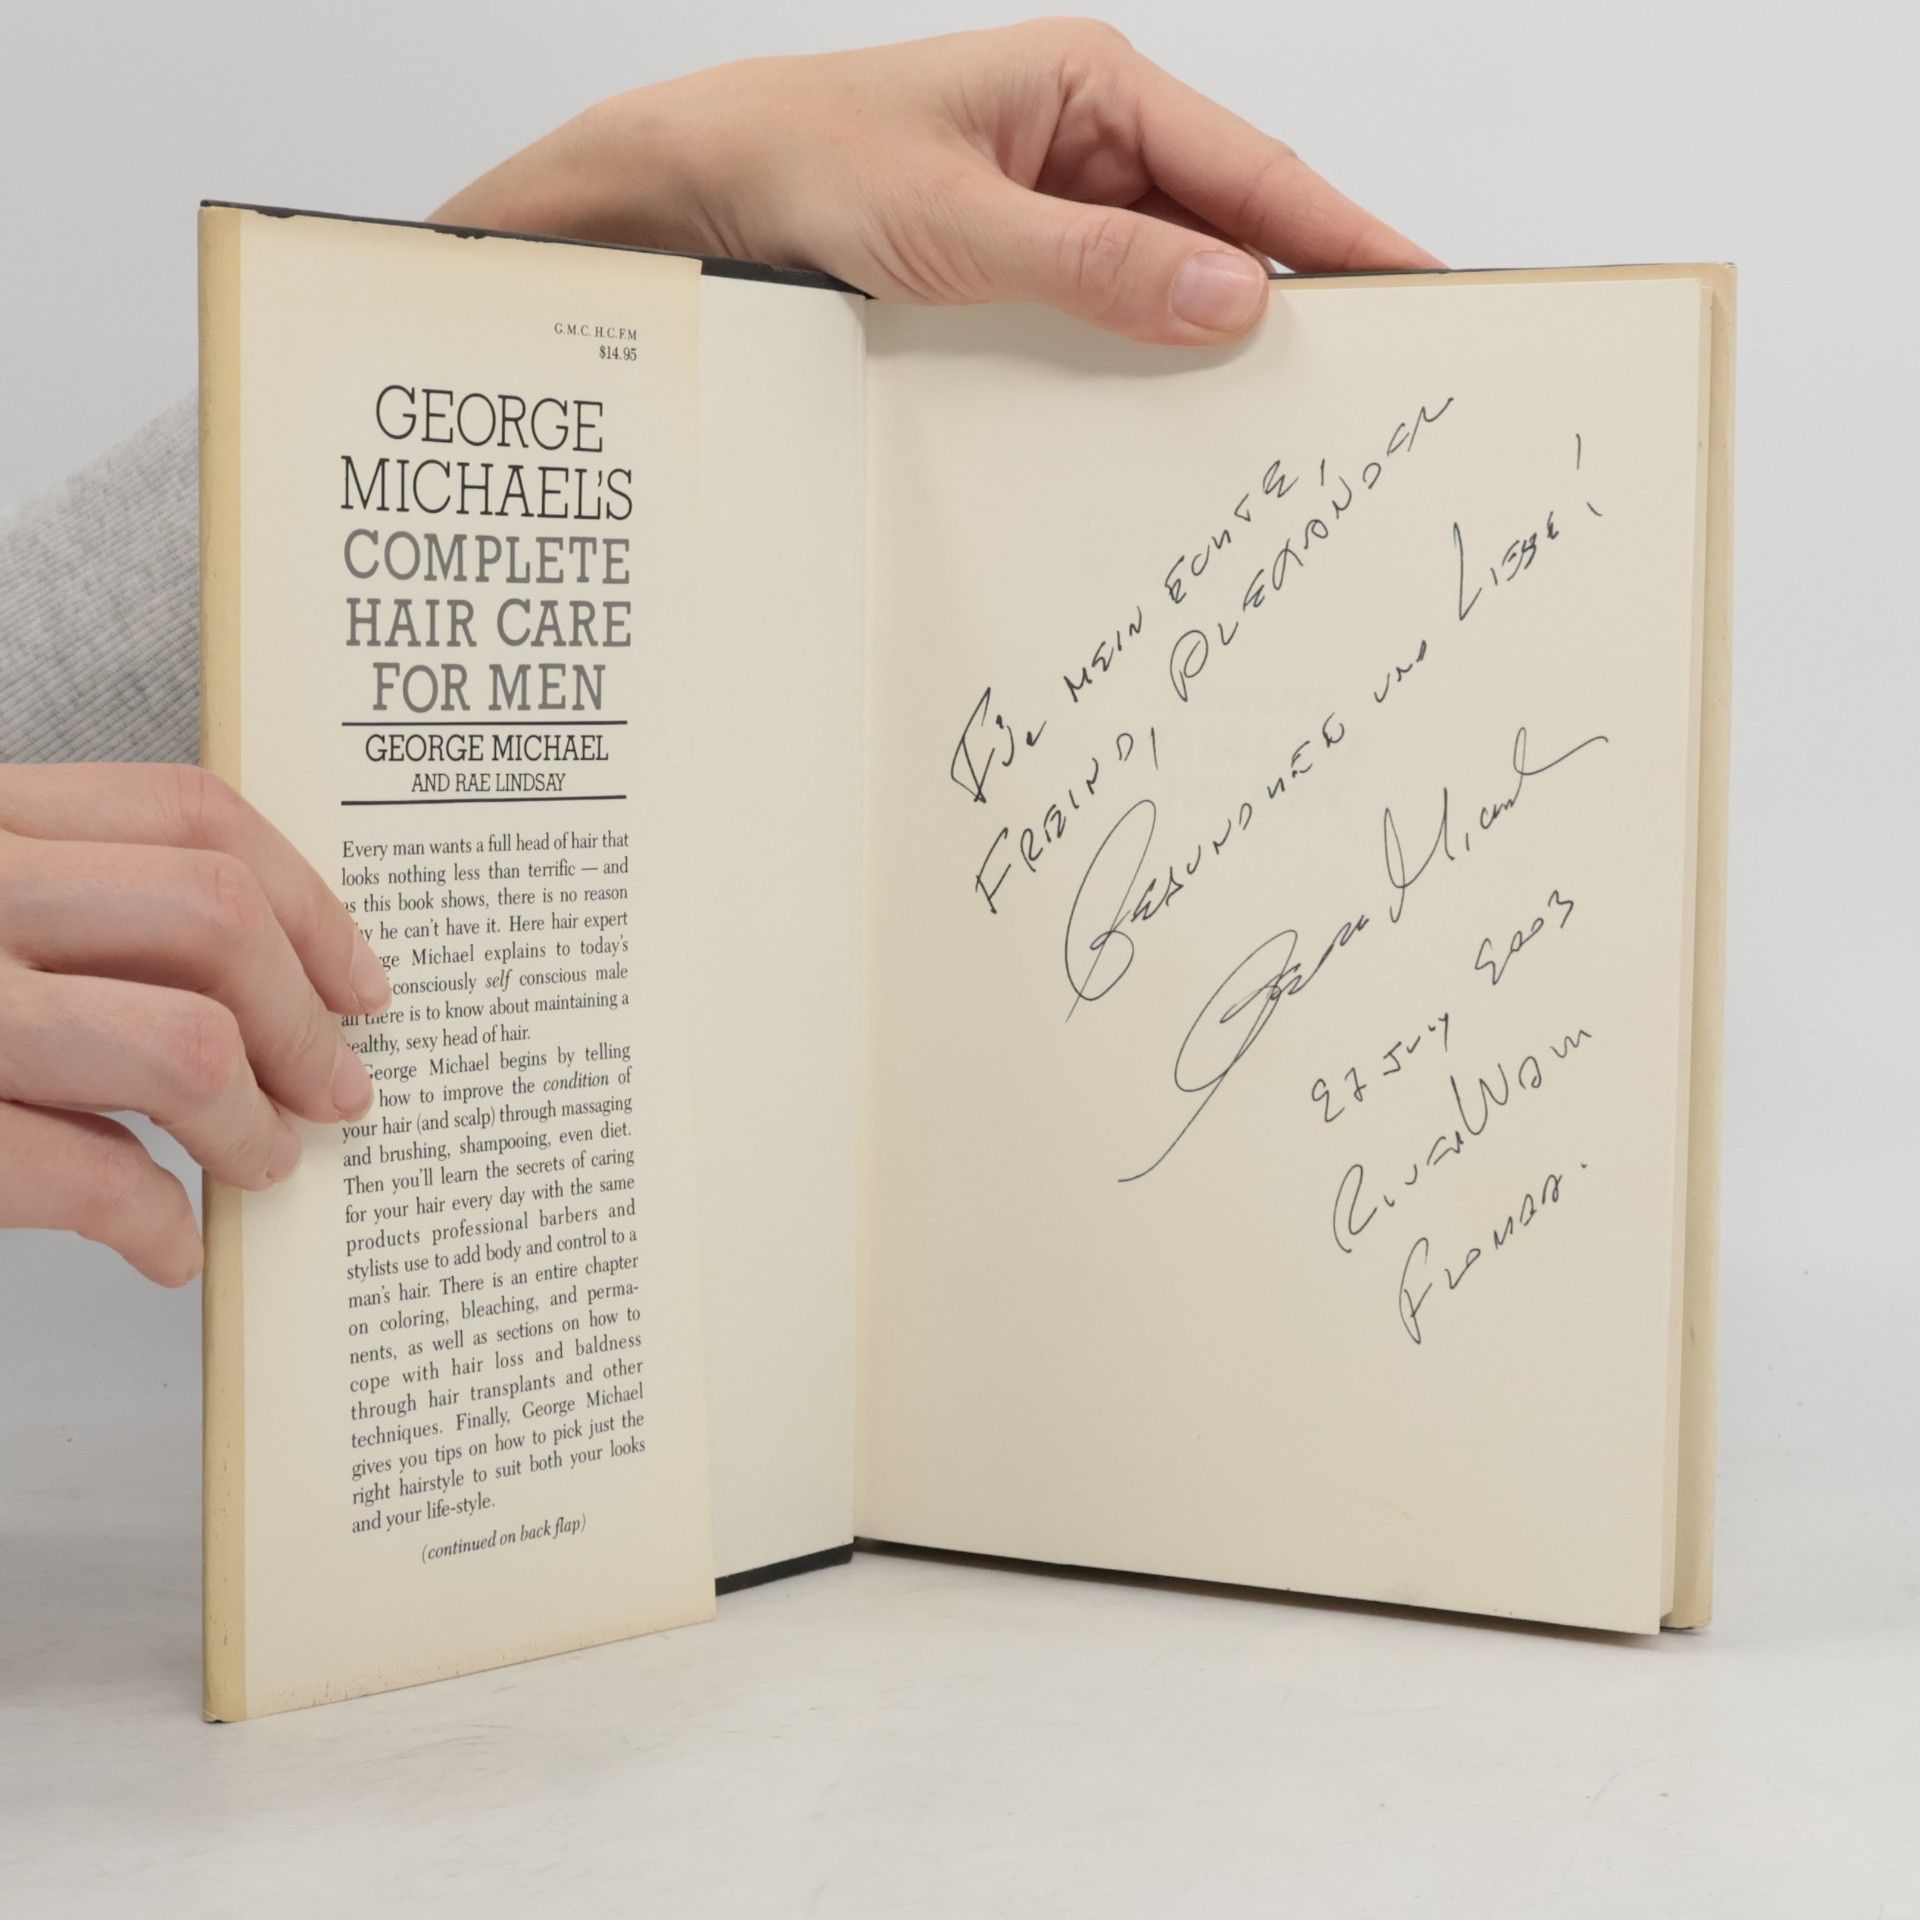 G.M.C. H.C.F.M
$14.95
GEORGE
MICHAEL'S
COMPLETE
HAIR CARE
FOR MEN
GEORGE MICHAEL
AND RAE LINDSAY
Every man wants a full head of hair that
looks nothing less than terrific — and
as this book shows, there is no reason
he can't have it. Here hair expert
Michael explains to today's
consciously self conscious male
all there is to know about maintaining a
healthy, sexy head of hair.
George Michael begins by telling
how to improve the condition of
your hair (and scalp) through massaging
and brushing, shampooing, even diet.
Then you'll learn the secrets of caring
for your hair every day with the same
products professional barbers and
stylists use to add body and control to a
man's hair. There is an entire chapter
on coloring, bleaching, and perma-
nents, as well as sections on how to
cope with hair loss and baldness
through hair transplants and other
techniques. Finally, George Michael
gives you tips on how to pick just the
right hairstyle to suit both your looks
and your life-style.
(continued on back flap)
FÜR MEIN ECHTE,
FREIND, ALEXANDER
GESUNDHEE UND LIEBE!
George Michael
27 JULY 2003